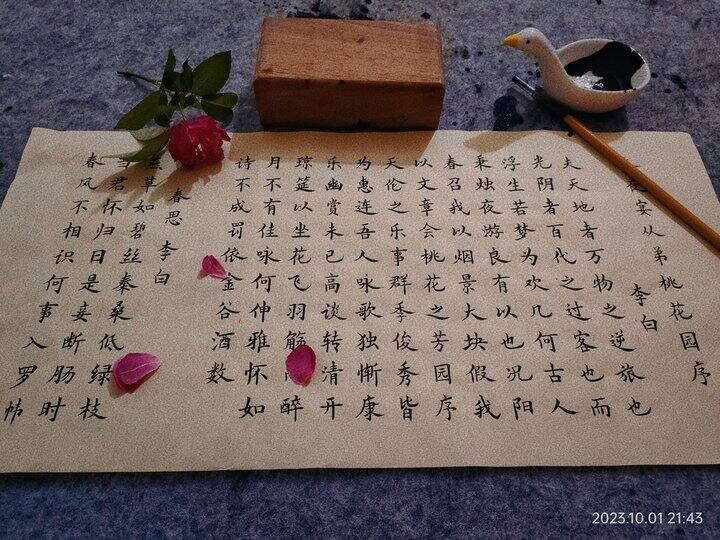 夜宴从弟桃花园序
李白
夫天地者万物之逆旅也
光阴者百代之过客也而
浮生若梦为欢几何古人
秉烛夜游良有以也况阳
春召我以烟景大块假我
以文章会桃花之芳园序
天伦之乐事群季俊秀皆
为惠连吾人咏歌独惭康
乐幽赏未已高谈转清开
琼筵以坐花飞羽觞醉
月不有佳咏何伸雅怀如
诗不成罚依金谷酒数
春思
李白
燕草如碧丝秦桑低绿枝
当君怀归日是妾断肠时
春风不相识何事入罗帏
2023.10.01 21:43